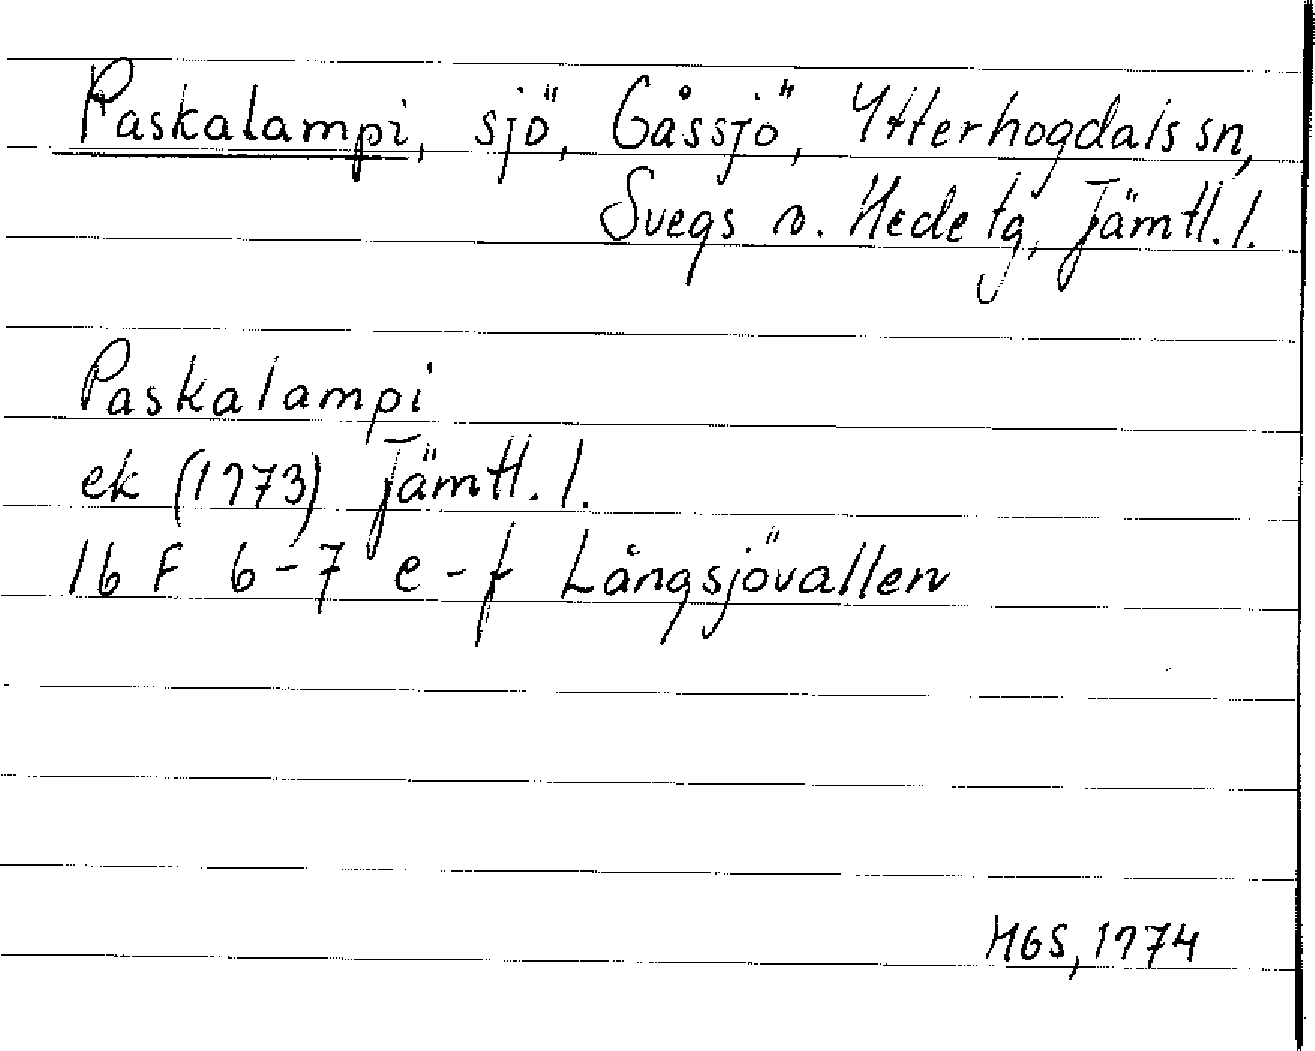 Paskalampi, sjö, Gåssjö, Ytterhogdals sn,
Svegs o. Hede tg, Jämtl. l.
Paskalampi
ek (1973) Jämtl. l.
16 F 6-7 e-f Långsjövallen
HGS, 1974